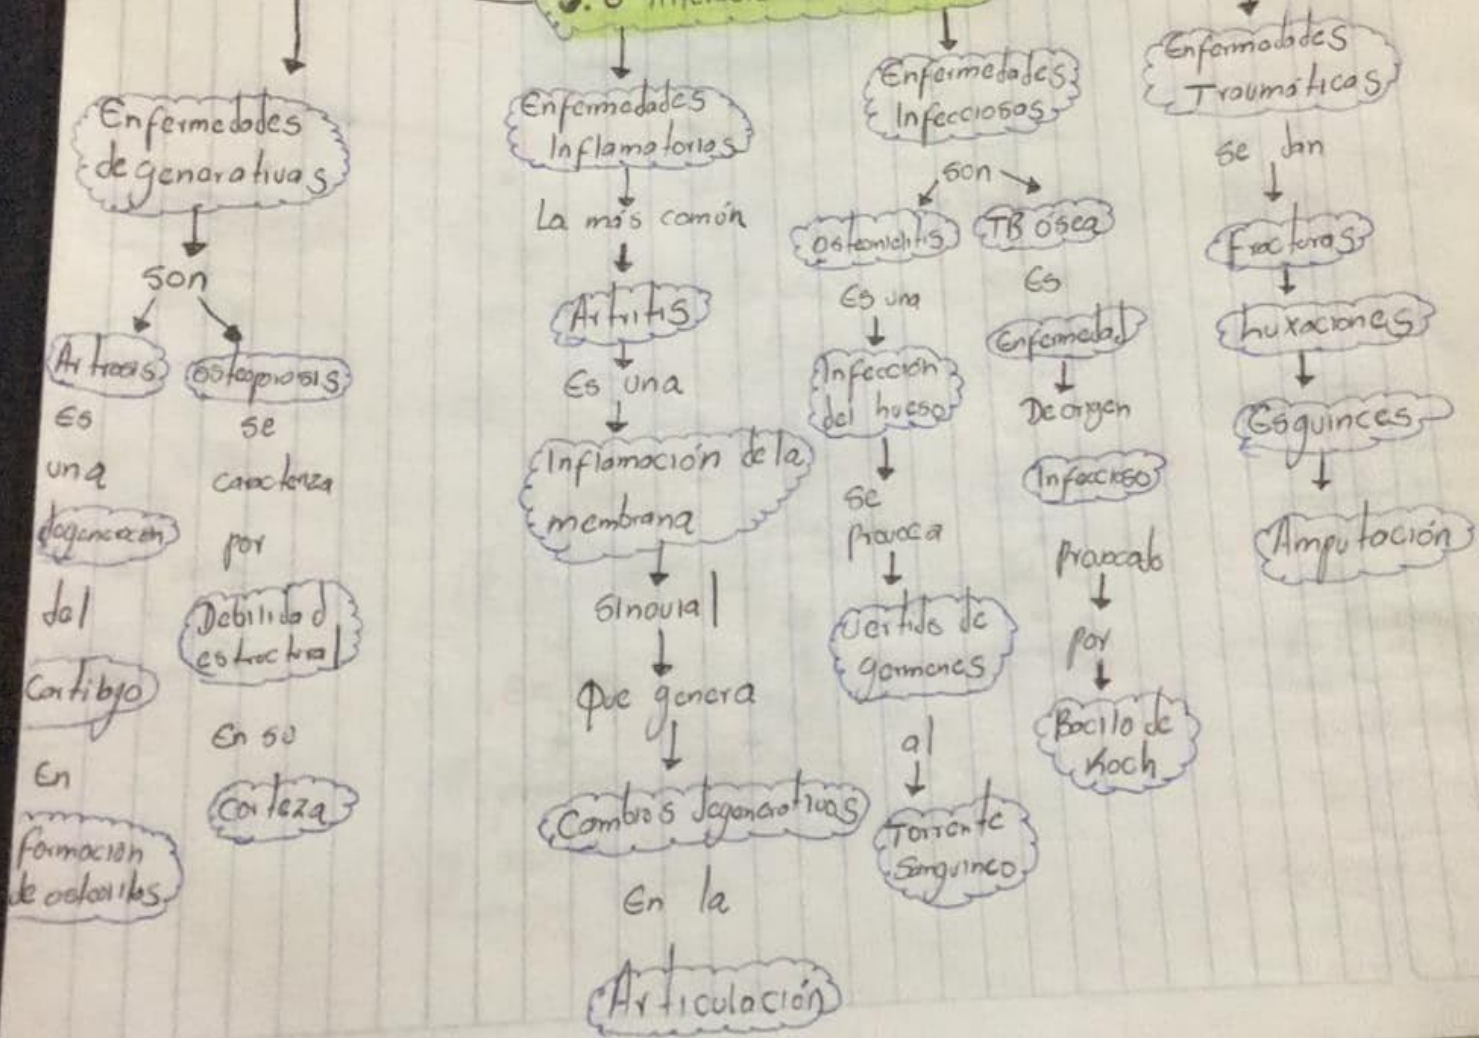 Enfermedades
degenarativas
son
Artrosis
Es
una
degeneración
del
Cartilago
En
formación
de osteocitos
Osteoporosis
se
caracteriza
por
Debilidad
estructural
En su
Corteza
Enfermedades
Inflamatorias
La más común
Artritis
Es una
Inflamación de la
membrana
Sinovial
Que genera
Cambios degenerativos
En la
Articulación
Enfermedades
Infecciosas
son
Osteomielitis
Es una
Infección
del hueso
se
Provoca
Vertido de
germenes
al
Torrente
Sanguineo
TB ósea
Es
Enfermedad
De origen
Infeccioso
Provocado
por
Bacilo de
Koch
Enfermedades
Traumáticas
se dan
Fracturas
Luxaciones
Esguinces
Amputación